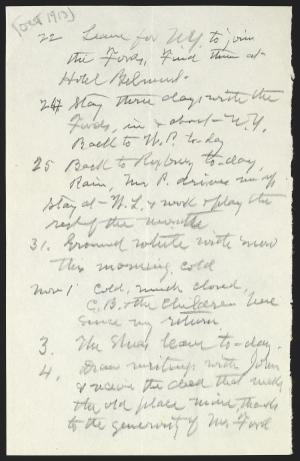 (Oct 1913)
22 Leave for N.Y. to join
the Fords, Find them at
Hotel Belmont.
24 Stay three days with the
Fords, in & about N.Y.
Back to W.P. to-day
25 Back to Roxbury to-day,
Rain, Mr P. drives me up
Stay at W.L. & work & play the
rest of the month
31. Ground white with snow
this morning, cold
Nov 1 cold, much cloud,
C.B. & the children here
since my return.
3. The Shaws leave to-day.
4. Draw writings with John
& receive the deed that makes
the old place mine, thanks
to the generosity of Mr Ford